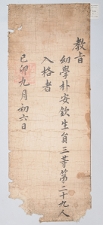 敎旨
幼學朴安欽生員三等第二十九人
入格者
己卯九月初六日